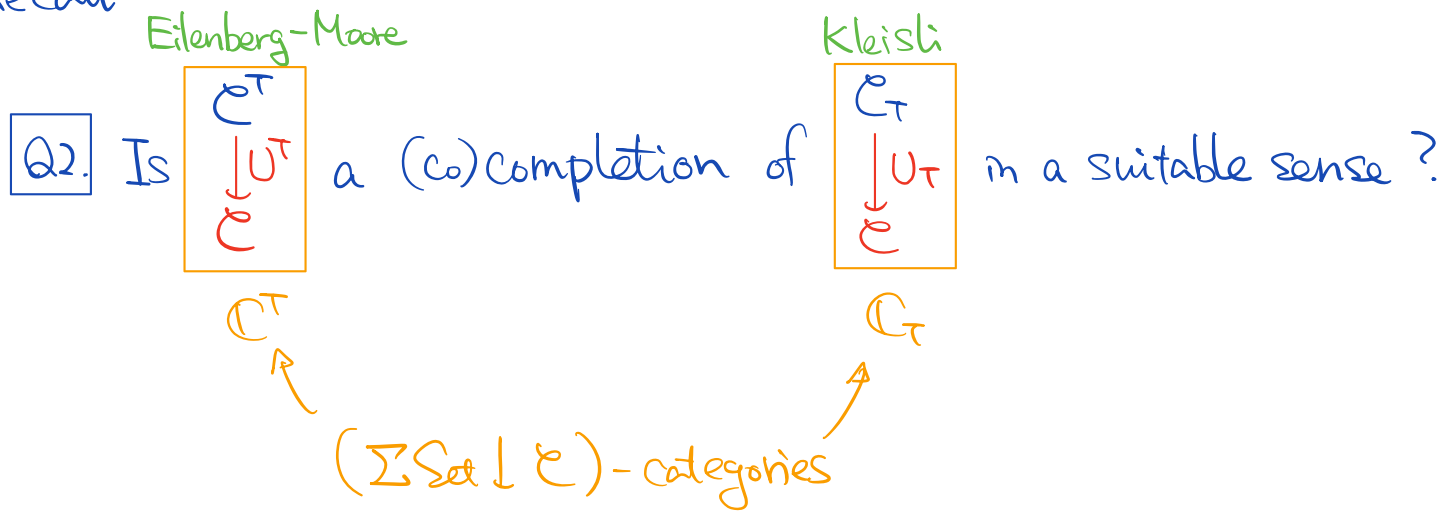 Recall
Eilenberg-Moore Kleisli
𝒞^T 𝒞_T
Q2. Is ↓U^T a (co)completion of ↓U_T in a suitable sense?
𝒞 𝒞
ℂ^T ℂ_T
(ΣSet ↓ 𝒞)-categories